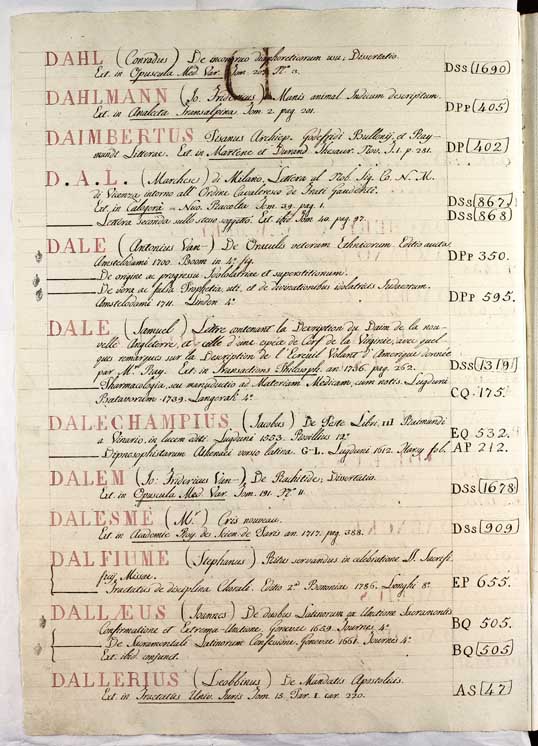 DAHL (Conradus) De incongruo diaphoreticorum usu; Dissertatio.
Ext. in Opuscula Med. Var. Tom. N.° 3. DSS 1690
DAHLMANN (Jo. Fridericus) Manis animal Indicum descriptum.
Ext. in Analecta Transalpina Tom. 2. pag. 201. DPP 405
DAIMBERTUS Pisanus Archiep. Godefridi Bullonij, et Ray-
mundi Litterae. Ext. in Martene et Durand Thesaur. Nov. T. 1. p. 281. DP 402
D. A. L. (Marchese) di Milano. Lettera al Nob. Sig. Co. N. M.
di Vicenza intorno all' Ordine Cavaleresco de Frati Gaudenti.
Ext. in Calogerà = Nuo. Raccolta Tom. 39. pag. 1. DSS 867
Lettera seconda sullo stesso soggetto. Ext. ibid. Tom. 40. pag. 97. DSS 868
DALE (Antonius Van-) De Oraculis veterum Ethnicorum Editio aucta.
Amstelodami 1700. Boom in 4.° fig. DPP 350.
De origine ac progressu Idololatriae et superstitionum.
De vera ac falsa Prophetia, uti, et de divinationibus idolatricis Judaeorum.
Amstelodami 1711. Linden 4.° DPP 595.
DALE (Samuel) Lettre contenant la Description du Daim de la nou-
velle Angleterre, et celle d'une espèce de Cerf de la Virginie, avec quel-
ques remarques sur la Description de l'Ecreuil Volant d'Amerique donnée
par M.r Ray. Ext. in Transactions Philosoph. an. 1736. pag. 262. DSS 1319
Pharmacologia, seu manuductio ad Materiam Medicam, cum notis. Lugduni
Batavorum 1739. Langerak 4.° CQ 175.
DALECHAMPIUS (Jacobus) De Peste Libri III Raimundi
a Vinario, in lucem editi. Lugduni Rovillius 12.° EQ 532.
Dipnosophistarum Athenaei versio latina. G-L. Lugduni 1612. Harsy fol. AP 212.
DALEM (Jo. Fridericus Van-) De Rachitide; Dissertatio.
Ext. in Opuscula Med. Var. Tom. 191. N.° 11. DSS 1678
DALESME (M.r) Cris nouveau.
Ext. in Academie Roy. des Scien. de Paris an. 1717. pag. 388. DSS 909
DALFIUME (Stephanus) Ritus servandus in celebratione SS. Sacrifi-
cij Missae.
Tractatus de disciplina Chorali. Editio 2.a Bononiae 1786. Longhi 8.° EP 655.
DALLÆUS (Joannes) De duobus Latinorum ex Unctione Sacramentis
Confirmatione et Extrema-Unctione. Genevae 1659. Tournés 4.° BQ 505.
De Sacramentali Latinorum Confessione. Genevae 1661. Tournés 4.°
Ext. ibid. conjunct. BQ 505
DALLERIUS (Leobbinus) De Mandatis Apostolicis.
Ext. in Tractatus Univ. Juris Tom. 15. Par. 1. car. 220. AS 47